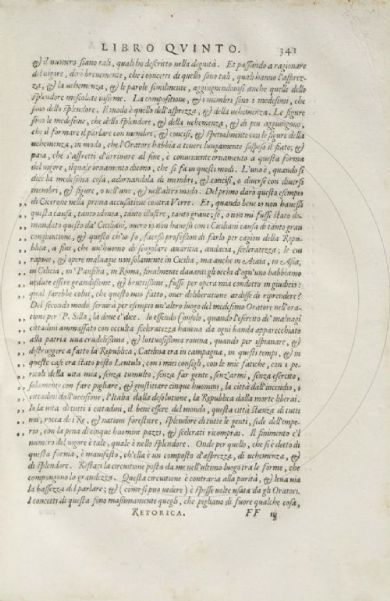 LIBRO QVINTO. 341
& il numero siano tali, quali ho descritto nella dignità. Et passando a ragionare
del vigore, dirò brevemente, che i concetti di quello sono tali, quali hanno l'asprez-
za, & la uehemenza, & le parole similmente, aggiungendouisi anche quelle dello
splendore mescolate insieme. La compositione, & i membri sono i medesimi, che
sono dello splendore. Il modo è quello dell'asprezza, & della uehemenza. Le figure
sono le medesime, che dello splendore, & della uehemenza, & di più aggiungono,
che il formare il parlar con membri, & concisi, & spetialmente con le figure della
uehemenza, in modo, che l'Oratore habbia a tenere lungamente sospeso il fiato; &
paia, che s'affretti d'arrivare al fine, è conueniente ornamento a questa forma
del vigore,
dici la medesima cosa, adornandola di membri, & concisi, o diuersi con diuersi
membri, & figure, o nell'uno, & nell'altro modo. Del primo darò questo esempio
di Cicerone nella prima accusatione contra Verre. Et, quando bene io non hauessi
questa causa, tanto degna, tanto illustre, tanto graue; se, o uoi mi fusse stato do-
mandato questo da' Ciciliani, ouero io non hauessi con i Ciciliani causa di tanta gran
congiuntione, & questo ch'io fo, facessi professione di farlo per cagion della Repu-
blica, a fine, che un'huomo di singolare auaritia, audacia, sceleratezza; le
& opere maluage non solamente in Cicilia, ma anche in Acaia, in Asia,
in Cilicia, in Panfilia, in Roma, finalmente dauanti gli occhi d'ogn'uno habbiamo
vedute essere grandissime, & bruttissime, fusse per opera mia condotto in giudicio:
qual sarebbe colui, che questo mio fatto, ouer deliberatione ardisse di riprendere?
Del secondo modo seruirà per esempio un'altro luogo del medesimo Oratore nell'ora-
tione per P. Silla, la doue e' dice. Io essendo Consolo, quando l'esercito di maluagi
cittadini ammassato con occulta sceleratezza haueua da ogni banda apparecchiato
alla patria una crudelissima, & luttuosissima rouina, quando per ispianare, &
distruggere a fatto la Republica, Catilina era in campagna, in questi tempi, & in
queste case era stato posto Lentulo, con i miei consigli, con le mie fatiche, con i pe-
ricoli della vita mia, senza tumulto, senza far gente, senz'armi, senza esercito,
solamente con fare pigliare, & giustitiare cinque huomini, la città dall'incendio, i
cittadini dall'uccisione, l'Italia dalla desolatione, la Republica dalla morte liberai.
Io la uita di tutti i cittadini, il bene essere del mondo, questa città stanza di tutti
noi, rocca di Re, & nationi forestiere, splendore di tutte le genti, sede dell'impe-
rio, con la pena di cinque huomini pazzi, & scelerati ricomprai. Il finimento e'l
numero del uigore è tale, quale è nello splendore. Onde per quello, che s'è detto di
questa forma, è manifesto, ch'ella è un composto d'asprezza, di uehemenza, &
di splendore. Restaci la circuitione posta da me nell'ultimo luogo tra le forme, che
compongono la grandezza. Questa circuitione è contraria alla purità, & leua uia
la bassezza del parlare; & (come si può uedere) è spesse uolte usata da gli Oratori.
I concetti di questa sono massimamente quegli, che pigliano di fuore qualche cosa,
RETORICA. FF iij